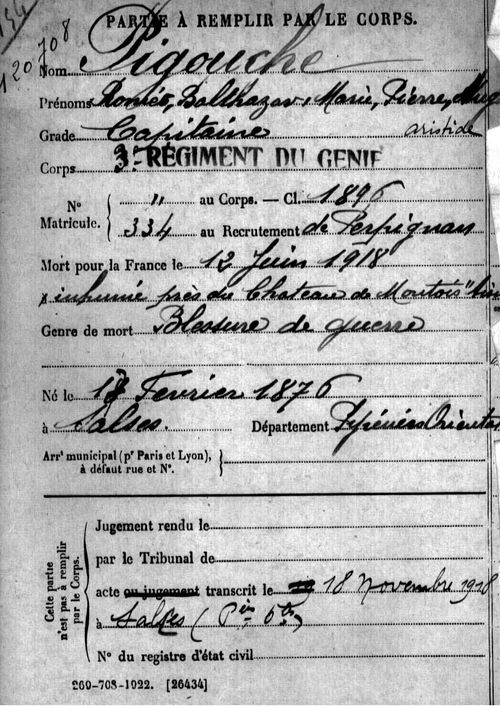 154
120708
PARTIE À REMPLIR PAR LE CORPS.
Nom Pigouche
Prénoms Balthazar, Marie, Pierre,
Grade Capitaine aristide
Corps 3e RÉGIMENT DU GENIE
N° Matricule. { " au Corps. — Cl. 1896
334 au Recrutement de Perpignan
Mort pour la France le 12 Juin 1918
x inhumé près du Chateau de Montois
Genre de mort Blessure de guerre
Né le 18 Fevrier 1876
à Salses Département Pyrénées Orientales
Arrt municipal (pr Paris et Lyon),
à défaut rue et N°.
Cette partie n'est pas à remplir par le Corps.
Jugement rendu le
par le Tribunal de
acte ou jugement transcrit le 18 Novembre 1918
à Salses (Pées Otles)
N° du registre d'état civil
269-708-1922. [26434]